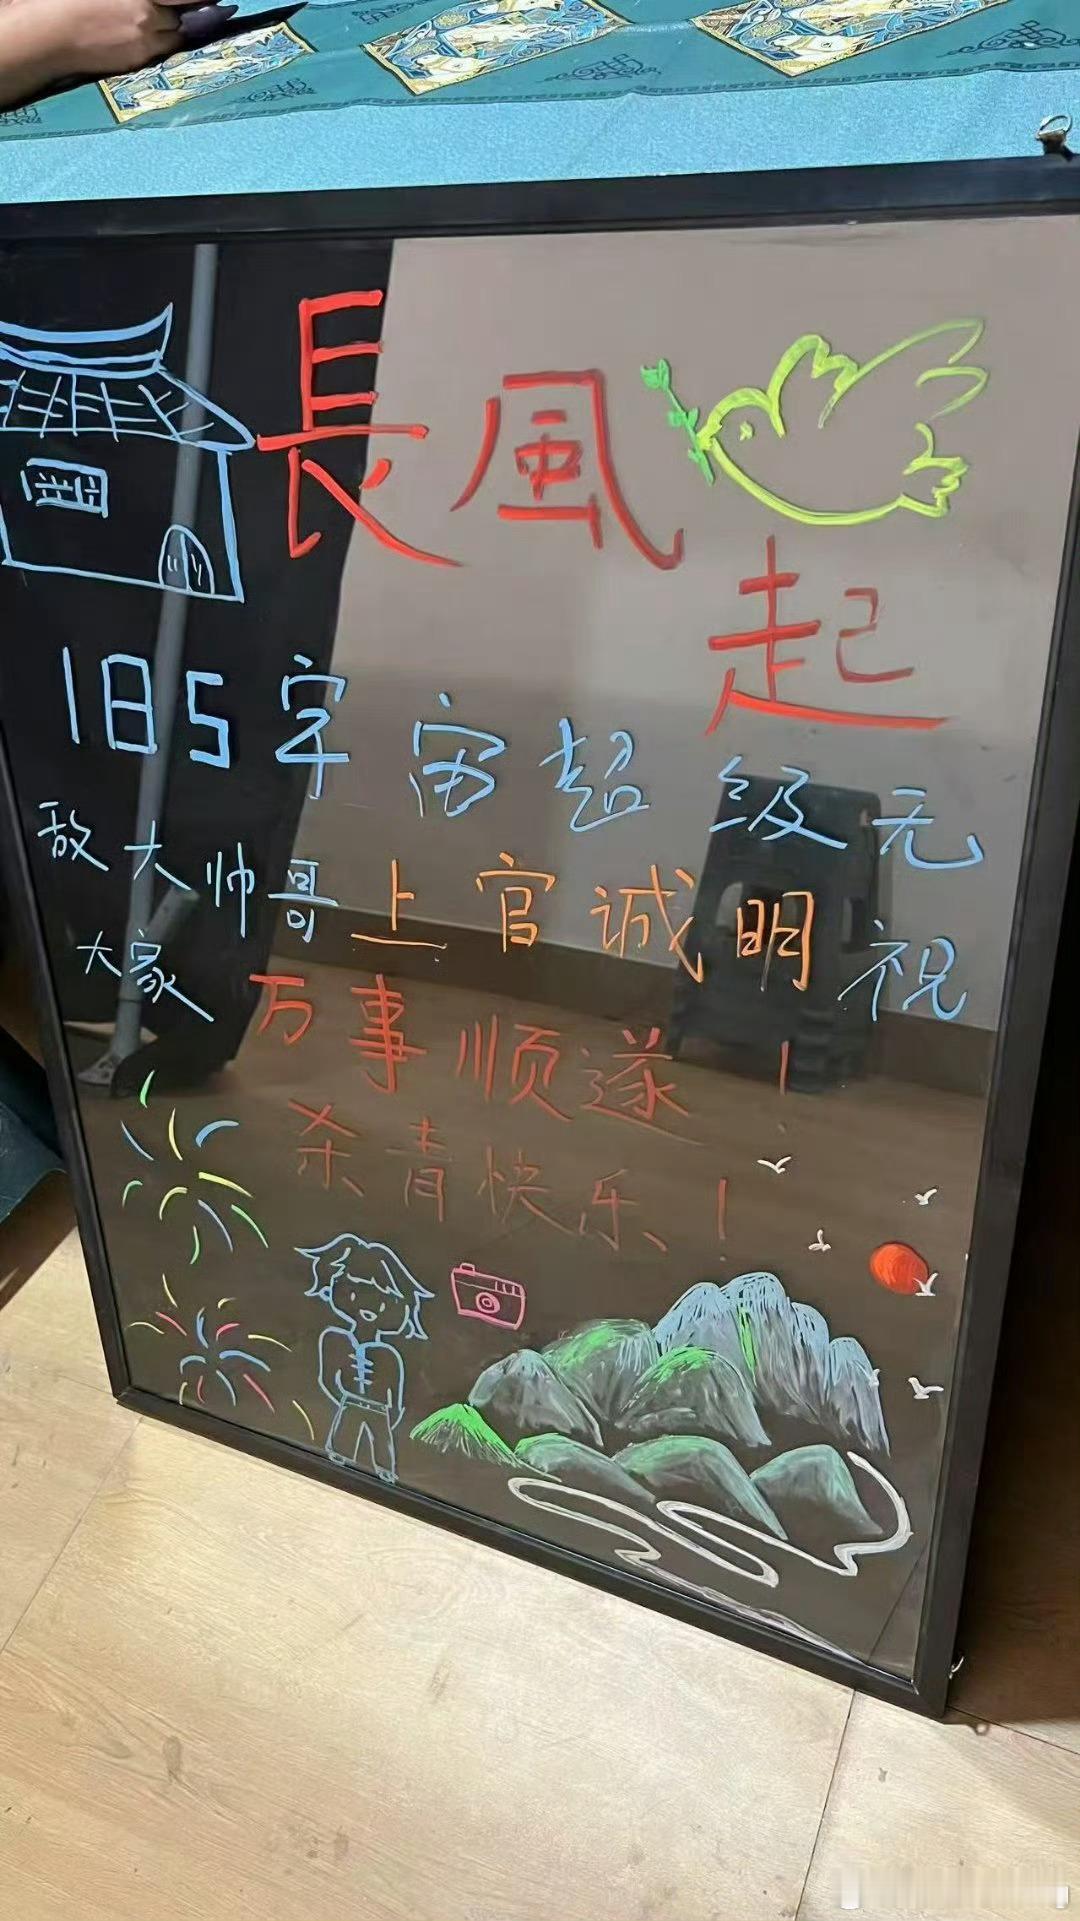 長風
起
185宇宙超级无
敌大帅哥上官诚明祝
大家万事顺遂！
杀青快乐！